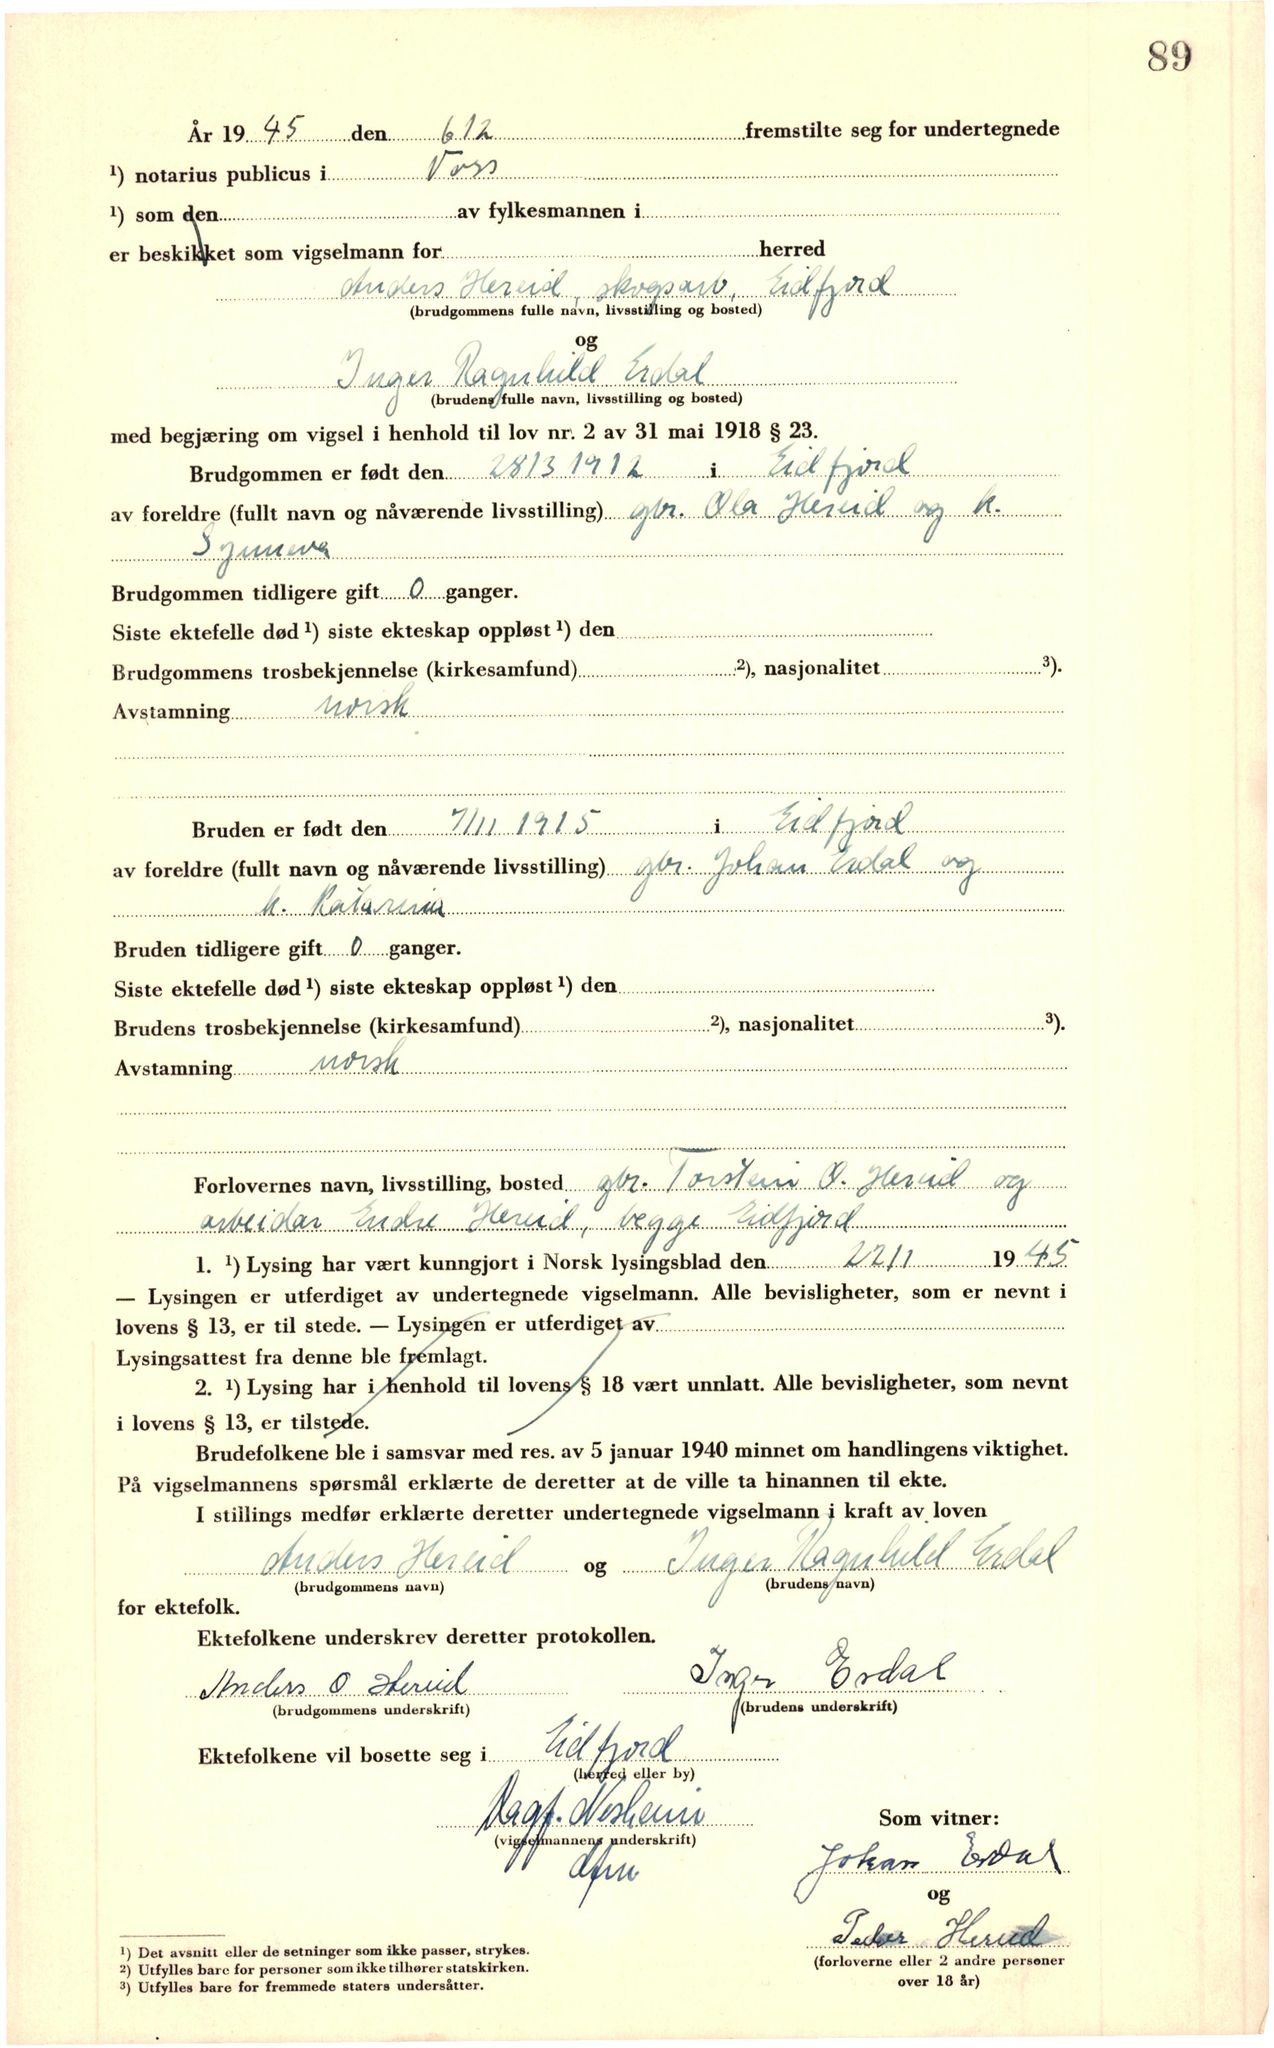 89
År 19 45 den 6/2 fremstilte seg for undertegnede
¹) notarius publicus i Voss
¹) som den av fylkesmannen i
er beskikket som vigselmann for herred
Anders Hereid, skogsarb, Eidfjord
(brudgommens fulle navn, livsstilling og bosted)
og
Inger Ragnhild Erdal
(brudens fulle navn, livsstilling og bosted)
med begjæring om vigsel i henhold til lov nr. 2 av 31 mai 1918 § 23.
Brudgommen er født den 28/3 1912 i Eidfjord
av foreldre (fullt navn og nåværende livsstilling) gbr. Ola Hereid og h.
Synneva
Brudgommen tidligere gift 0 ganger.
Siste ektefelle død ¹) siste ekteskap oppløst ¹) den
Brudgommens trosbekjennelse (kirkesamfund) ²), nasjonalitet ³).
Avstamning norsk
Bruden er født den 7/11 1915 i Eidfjord
av foreldre (fullt navn og nåværende livsstilling) gbr. Johan Erdal og
h. Katarina
Bruden tidligere gift 0 ganger.
Siste ektefelle død ¹) siste ekteskap oppløst ¹) den
Brudens trosbekjennelse (kirkesamfund) ²), nasjonalitet ³).
Avstamning norsk
Forlovernes navn, livsstilling, bosted gbr. Torstein O. Hereid og
arbeidar Endre Hereid, begge Eidfjord
1. ¹) Lysing har vært kunngjort i Norsk lysingsblad den 22/1 19 45
— Lysingen er utferdiget av undertegnede vigselmann. Alle bevisligheter, som er nevnt i
lovens § 13, er til stede. — Lysingen er utferdiget av
Lysingsattest fra denne ble fremlagt.
2. ¹) Lysing har i henhold til lovens § 18 vært unnlatt. Alle bevisligheter, som nevnt
i lovens § 13, er tilstede.
Brudefolkene ble i samsvar med res. av 5 januar 1940 minnet om handlingens viktighet.
På vigselmannens spørsmål erklærte de deretter at de ville ta hinannen til ekte.
I stillings medfør erklærte deretter undertegnede vigselmann i kraft av loven
Anders Hereid og Inger Ragnhild Erdal
(brudgommens navn) (brudens navn)
for ektefolk.
Ektefolkene underskrev deretter protokollen.
Anders O Hereid Inger Erdal
(brudgommens underskrift) (brudens underskrift)
Ektefolkene vil bosette seg i Eidfjord
(herred eller by)
Ragf. Nesheim
(vigselmannens underskrift)
Som vitner:
Johan Erdal
og
Peder Hereid
(forloverne eller 2 andre personer
over 18 år)
¹) Det avsnitt eller de setninger som ikke passer, strykes.
²) Utfylles bare for personer som ikke tilhører statskirken.
³) Utfylles bare for fremmede staters undersåtter.